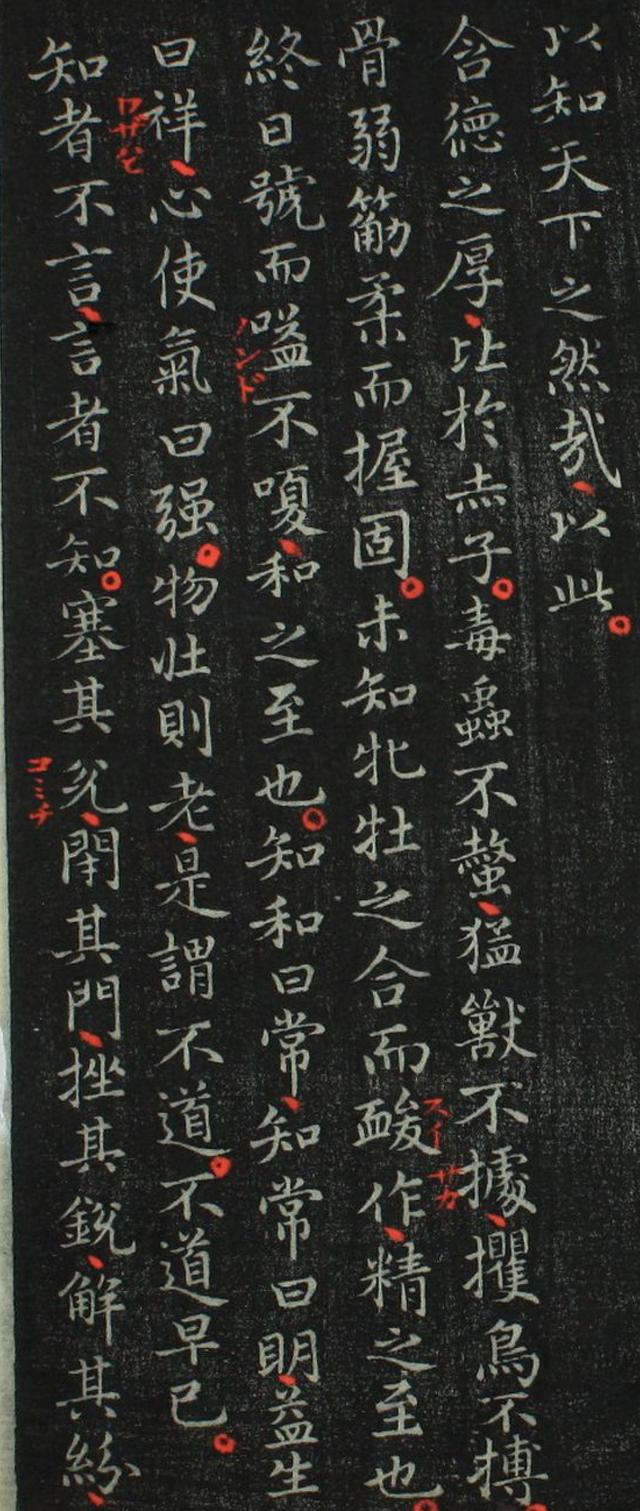 以知天下之然哉以此
含德之厚比於赤子毒蟲不螫猛獸不據攫鳥不搏
骨弱筋柔而握固未知牝牡之合而酸作精之至也
終日號而嗌不嗄和之至也知和曰常知常曰明益生
曰祥心使氣曰强物壯則老是謂不道不道早已
知者不言言者不知塞其兊閉其門挫其銳解其紛
スイ
サカ
ノンド
コミチ